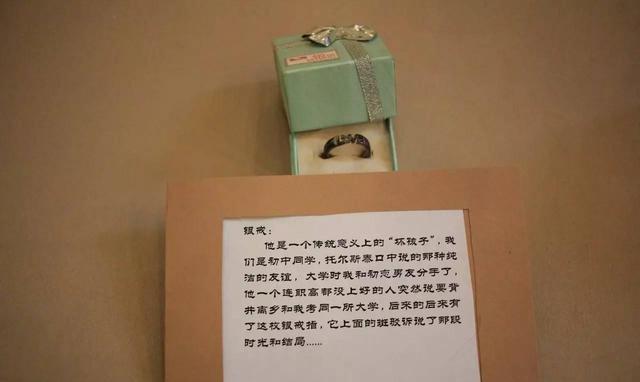 银戒：
他是一个传统意义上的“坏孩子”，我
们是初中同学，托尔斯泰口中说的那种纯
洁的友谊，大学时我和初恋男友分手了，
他一个连职高都没上好的人突然说要背
井离乡和我考同一所大学，后来的后来有
了这枚银戒指，它上面的斑驳诉说了那段
时光和结局......